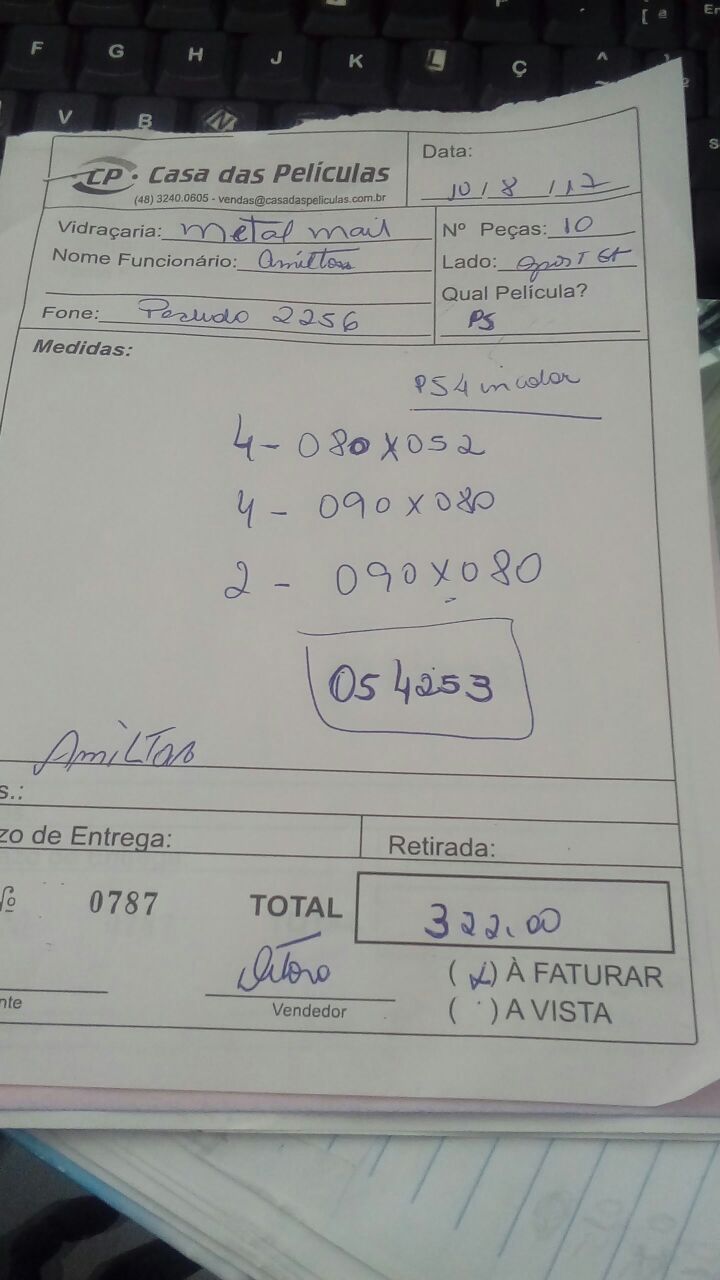 F G H J K L Ç ^
V B N
CP · Casa das Películas
(48) 3240.0605 - vendas@casadaspeliculas.com.br
Data:
10 / 8 / 17
Vidraçaria: metal mail
Nº Peças: 10
Nome Funcionário: Amilton
Lado:
Qual Película?
PS
Fone: Pedido 2256
Medidas:
PS4 incolor
4 - 080 x 052
4 - 090 x 080
2 - 090 x 080
054253
Amilton
s.:
zo de Entrega:
Retirada:
Nº 0787
TOTAL 322.00
(x) À FATURAR
nte
Vendedor
( ) A VISTA